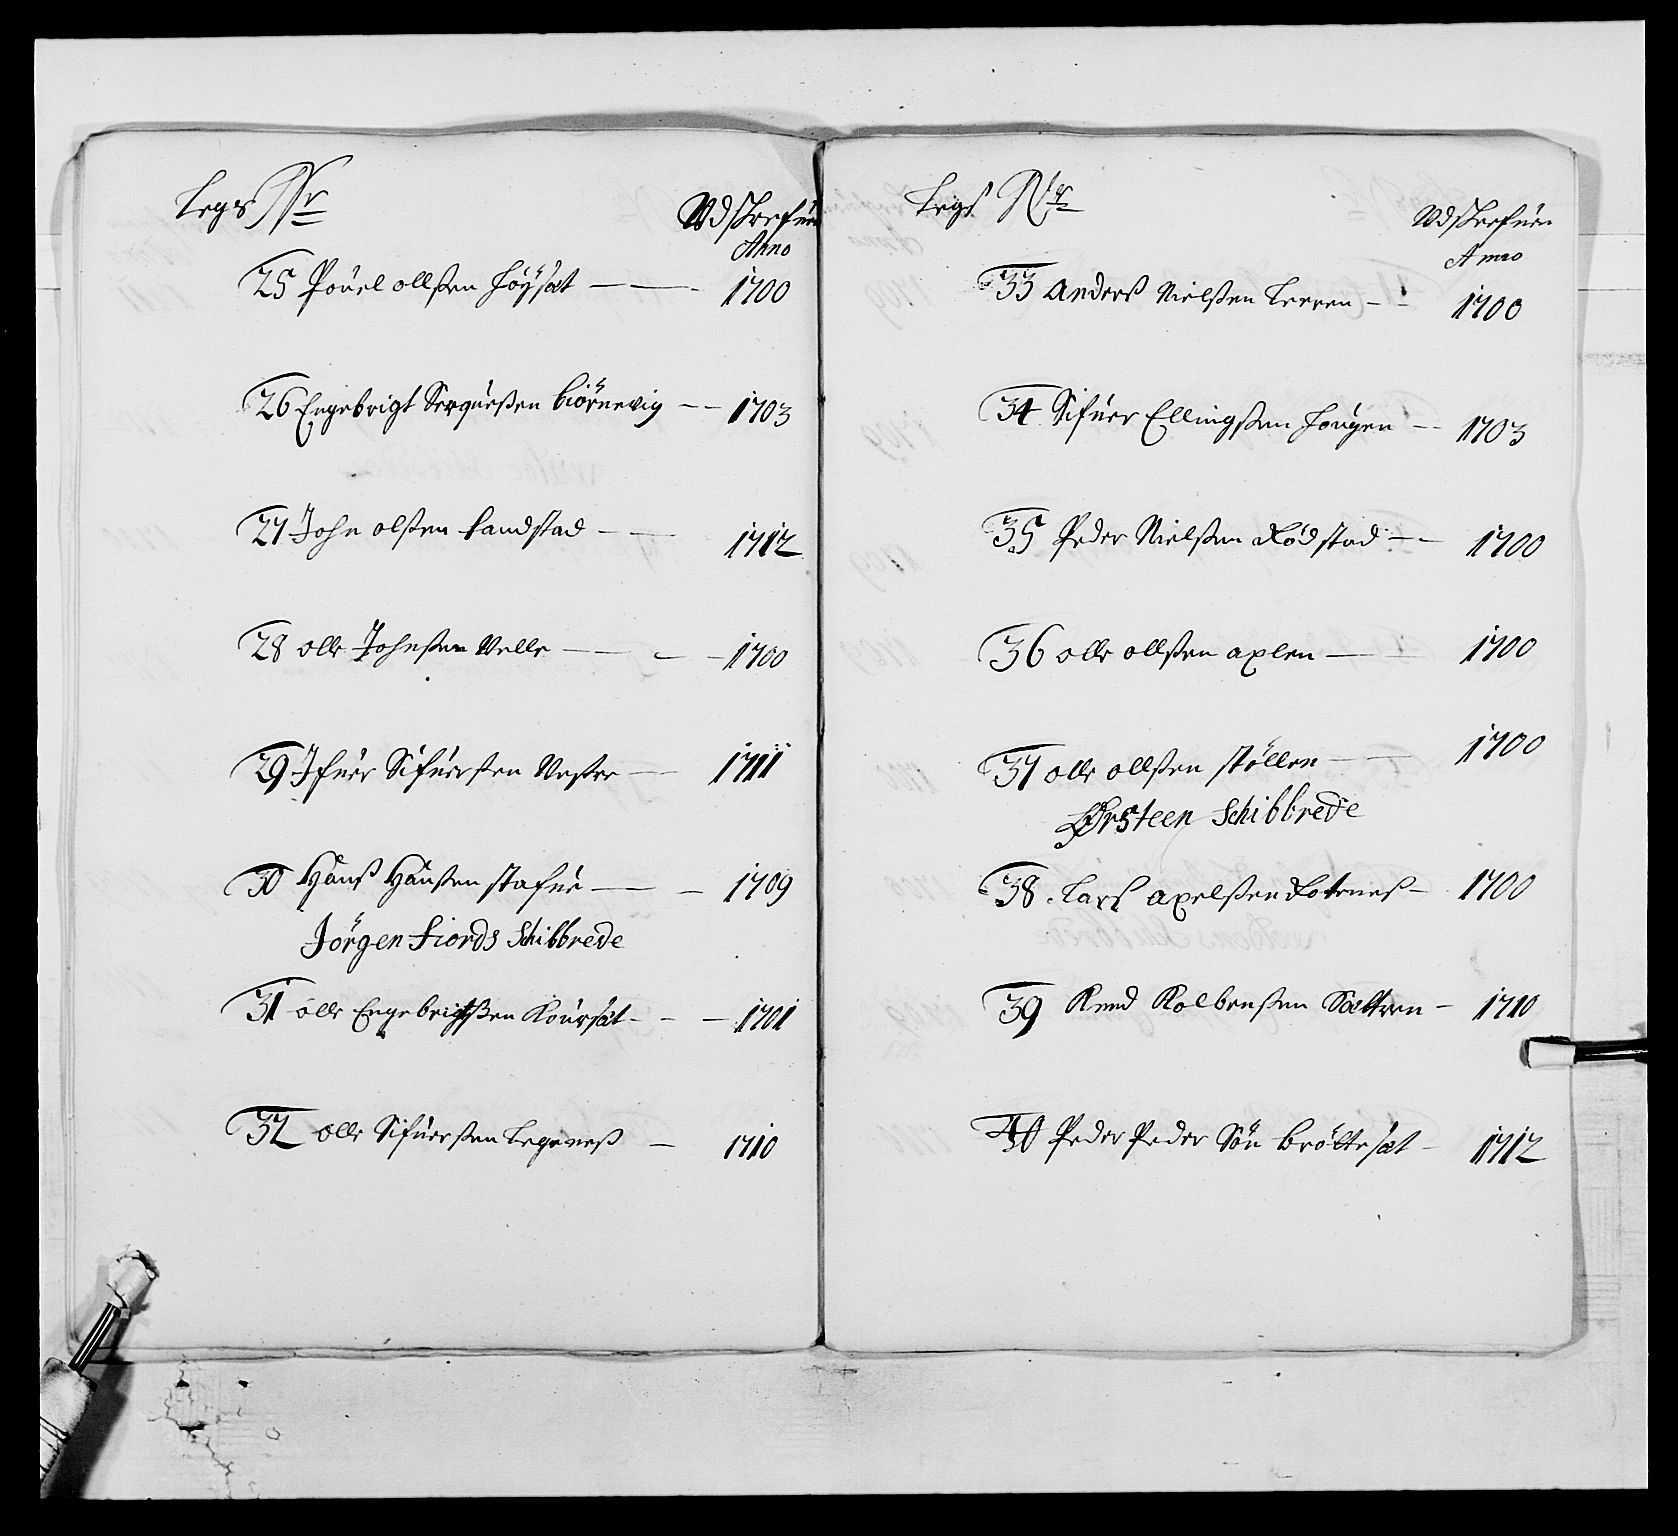 Legs Nr
Udskrefuen
Anno
25 Pouel ollßen Høysæt — 1700
26 Engebrigt Serqueßen Biörnevig — 1703
27 John olßen Landstad — 1712
28 olle Johnßen Velle — 1700
29 Ifuer Sifuerßen Vestre — 1711
30 Hanß Hanßen stafne — 1709
Jörgen Fiords Schibbrede
31 olle Engebrigtßen Kaursæt — 1701
32 olle Sifuerßen Legeneß — 1710
Legs Nr
Udskrefuen
Anno
33 Anderß Nielßen Leeren — 1700
34 Sifuer Ellingßen Hougen — 1703
35 Peder Nielßen Rødstad — 1700
36 olle ollßen axlen — 1700
37 olle ollßen støllen — 1700
Ørsteen Schibbrede
38 Larß axelßen Rotneß — 1700
39 Knud Kolbenßen Sæltren — 1710
40 Peder Peder Søn Brøltesæt — 1712